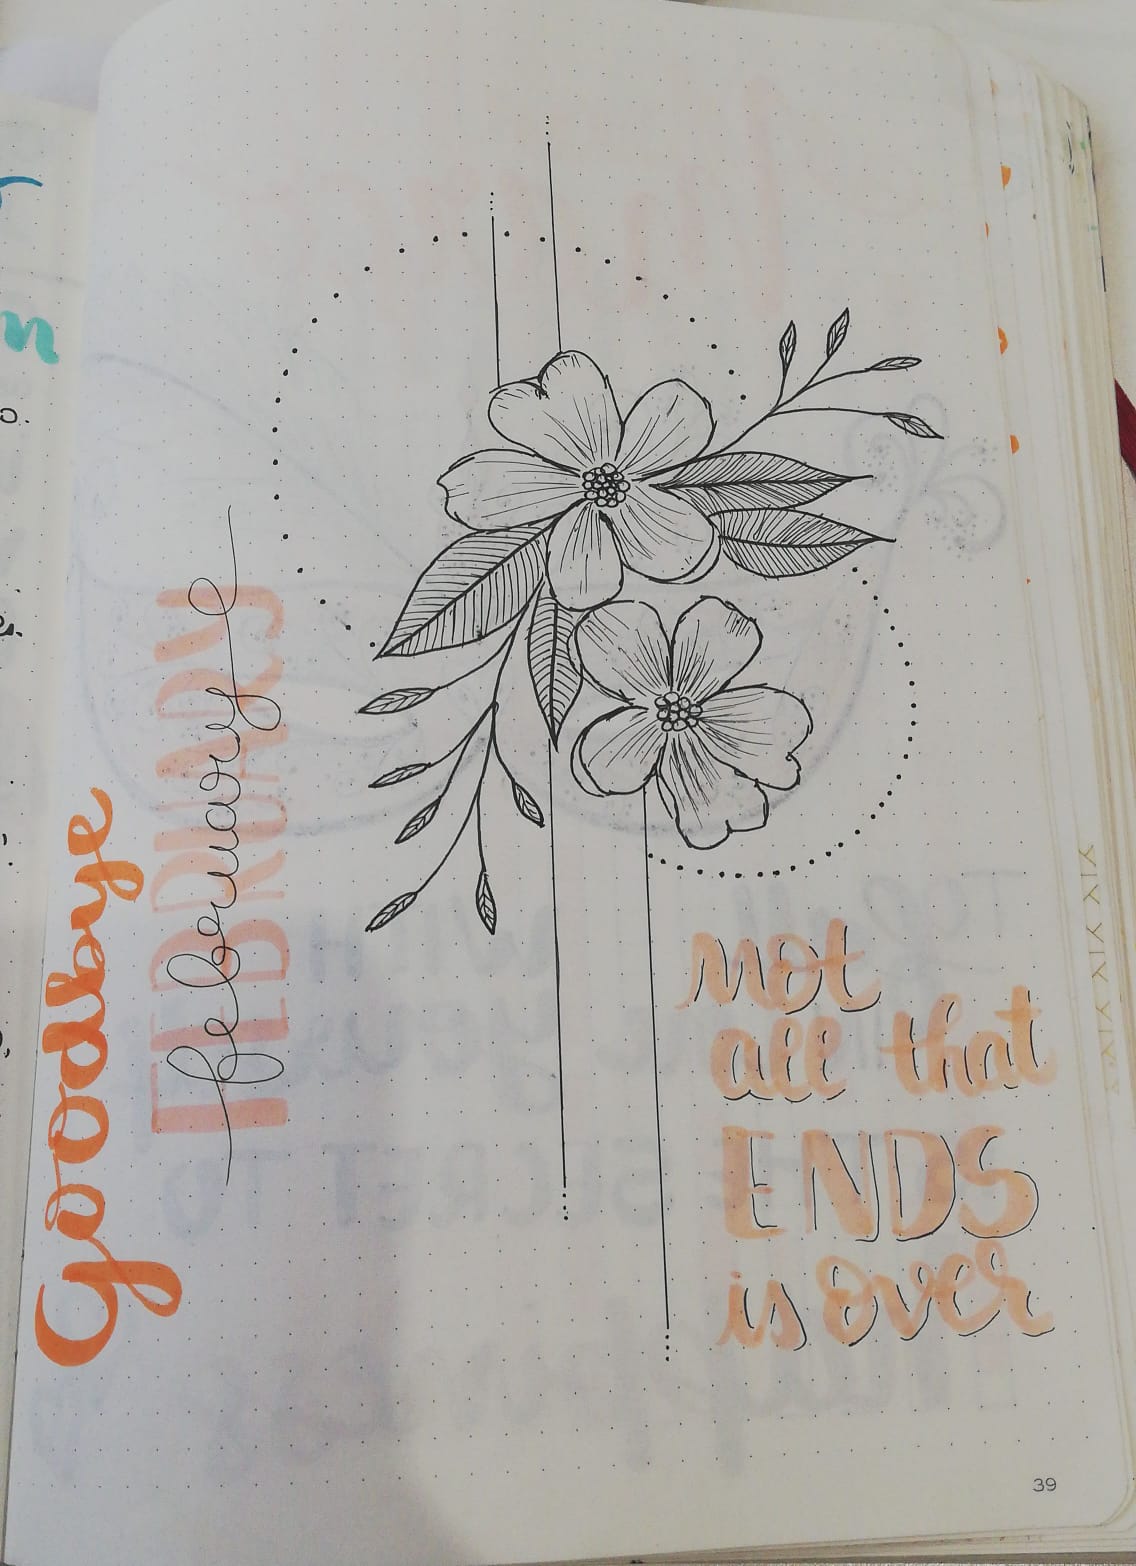 Goodbye
FEBRUARY
february
not
all that
ENDS
is over
39